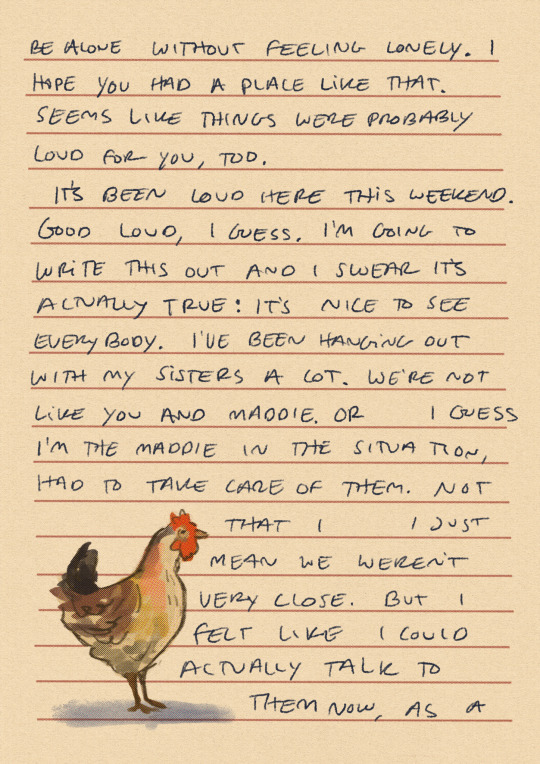 BE ALONE WITHOUT FEELING LONELY. I
HOPE YOU HAD A PLACE LIKE THAT.
SEEMS LIKE THINGS WERE PROBABLY
LOUD FOR YOU, TOO.
IT'S BEEN LOUD HERE THIS WEEKEND.
GOOD LOUD, I GUESS. I'M GOING TO
WRITE THIS OUT AND I SWEAR IT'S
ACTUALLY TRUE: IT'S NICE TO SEE
EVERYBODY. I'VE BEEN HANGING OUT
WITH MY SISTERS A LOT. WE'RE NOT
LIKE YOU AND MADDIE. OR I GUESS
I'M THE MADDIE IN THE SITUATION,
HAD TO TAKE CARE OF THEM. NOT
THAT I I JUST
MEAN WE WEREN'T
VERY CLOSE. BUT I
FELT LIKE I COULD
ACTUALLY TALK TO
THEM NOW, AS A